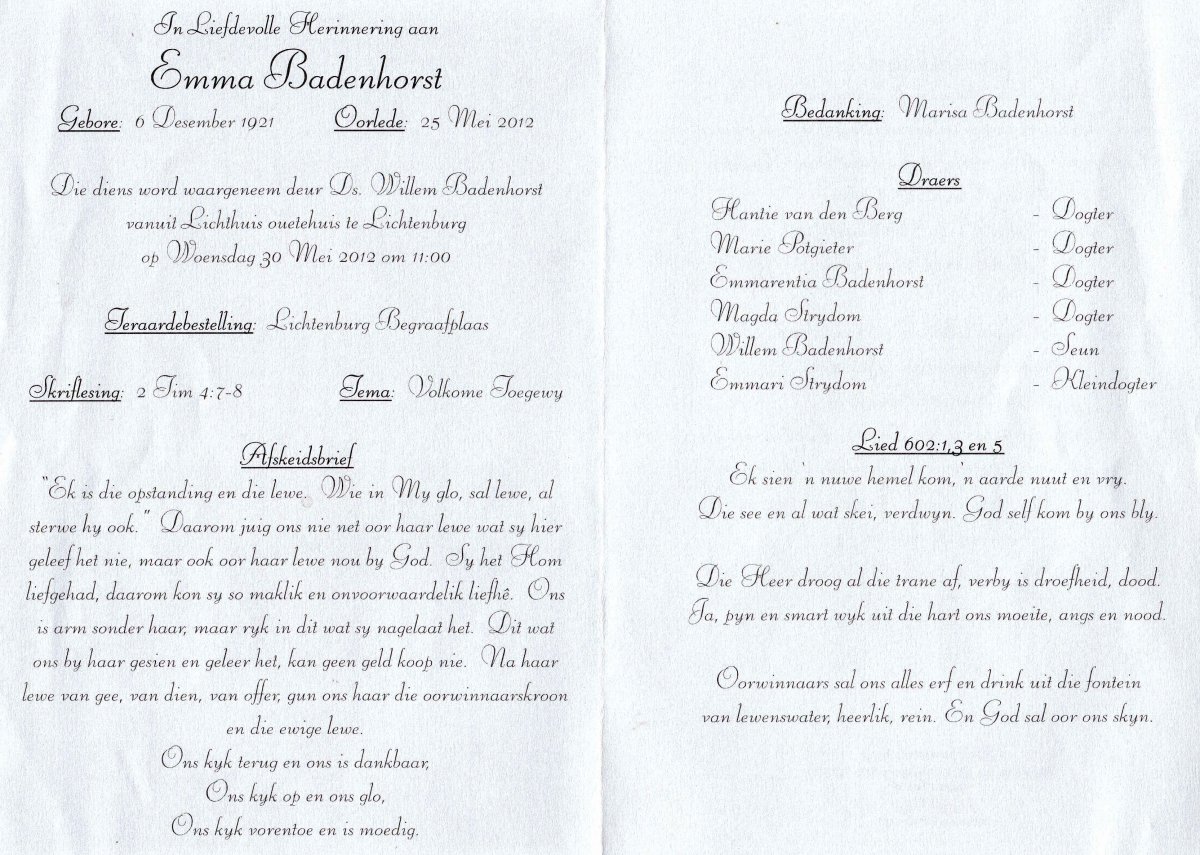 In Liefdevolle Herinnering aan
Emma Badenhorst
Gebore: 6 Desember 1921 Oorlede: 25 Mei 2012
Die diens word waargeneem deur Ds. Willem Badenhorst
vanuit Lichthuis ouetehuis te Lichtenburg
op Woensdag 30 Mei 2012 om 11:00
Teraardebestelling: Lichtenburg Begraafplaas
Skriflesing: 2 Tim 4:7-8 Tema: Volkome Toegewy
Afskeidsbrief
"Ek is die opstanding en die lewe. Wie in My glo, sal lewe, al
sterwe hy ook." Daarom juig ons nie net oor haar lewe wat sy hier
geleef het nie, maar ook oor haar lewe nou by God. Sy het Hom
liefgehad, daarom kon sy so maklik en onvoorwaardelik liefhê. Ons
is arm sonder haar, maar ryk in dit wat sy nagelaat het. Dit wat
ons by haar gesien en geleer het, kan geen geld koop nie. Na haar
lewe van gee, van dien, van offer, gun ons haar die oorwinnaarskroon
en die ewige lewe.
Ons kyk terug en ons is dankbaar,
Ons kyk op en ons glo,
Ons kyk vorentoe en is moedig.
Bedanking: Marisa Badenhorst
Draers
Hantie van den Berg - Dogter
Marie Potgieter - Dogter
Emmarentia Badenhorst - Dogter
Magda Strydom - Dogter
Willem Badenhorst - Seun
Emmari Strydom - Kleindogter
Lied 602:1,3 en 5
Ek sien 'n nuwe hemel kom, 'n aarde nuut en vry.
Die see en al wat skei, verdwyn. God self kom by ons bly.
Die Heer droog al die trane af, verby is droefheid, dood.
Ja, pyn en smart wyk uit die hart ons moeite, angs en nood.
Oorwinnaars sal ons alles erf en drink uit die fontein
van lewenswater, heerlik, rein. En God sal oor ons skyn.